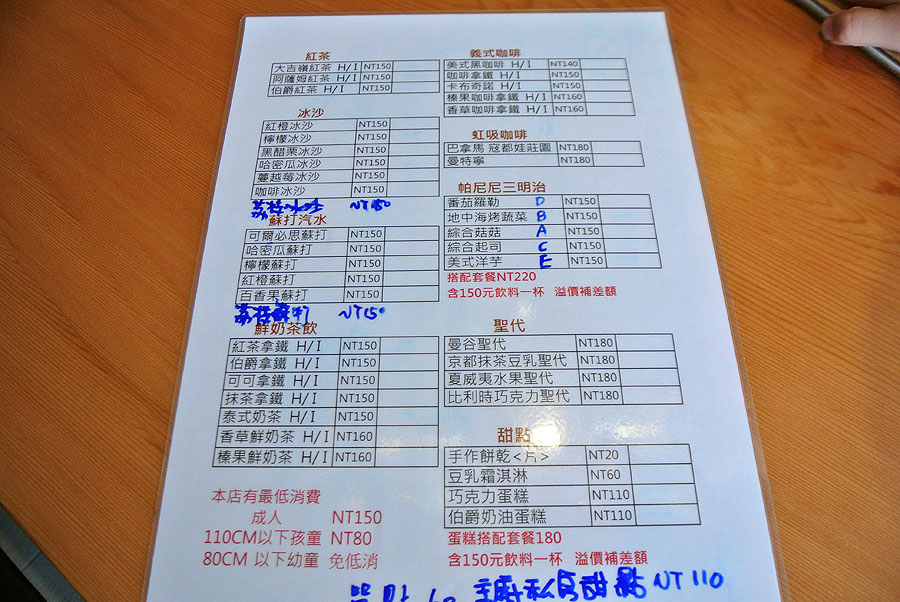 紅茶
大吉嶺紅茶 H/I NT150
阿薩姆紅茶 H/I NT150
伯爵紅茶 H/I NT150
冰沙
紅橙冰沙 NT150
檸檬冰沙 NT150
黑醋栗冰沙 NT150
哈密瓜冰沙 NT150
蔓越莓冰沙 NT150
咖啡冰沙 NT150
荔枝冰沙 NT150
蘇打汽水
可爾必思蘇打 NT150
哈密瓜蘇打 NT150
檸檬蘇打 NT150
紅橙蘇打 NT150
百香果蘇打 NT150
荔枝蘇打 NT150
鮮奶茶飲
紅茶拿鐵 H/I NT150
伯爵拿鐵 H/I NT150
可可拿鐵 H/I NT150
抹茶拿鐵 H/I NT150
泰式奶茶 H/I NT150
香草鮮奶茶 H/I NT160
榛果鮮奶茶 H/I NT160
本店有最低消費
成人 NT150
110CM以下孩童 NT80
80CM 以下幼童 免低消
義式咖啡
美式黑咖啡 H/I NT140
咖啡拿鐵 H/I NT150
卡布奇諾 H/I NT150
榛果咖啡拿鐵 H/I NT160
香草咖啡拿鐵 H/I NT160
虹吸咖啡
巴拿馬 冦都娃莊園 NT180
曼特寧 NT180
帕尼尼三明治
番茄羅勒 D NT150
地中海烤蔬菜 B NT150
綜合菇菇 A NT150
綜合起司 C NT150
美式洋芋 E NT150
搭配套餐NT220
含150元飲料一杯 溢價補差額
聖代
曼谷聖代 NT180
京都抹茶豆乳聖代 NT180
夏威夷水果聖代 NT180
比利時巧克力聖代 NT180
甜點
手作餅乾<片> NT20
豆乳霜淇淋 NT60
巧克力蛋糕 NT110
伯爵奶油蛋糕 NT110
蛋糕搭配套餐180
含150元飲料一杯 溢價補差額
甜點 NT 110